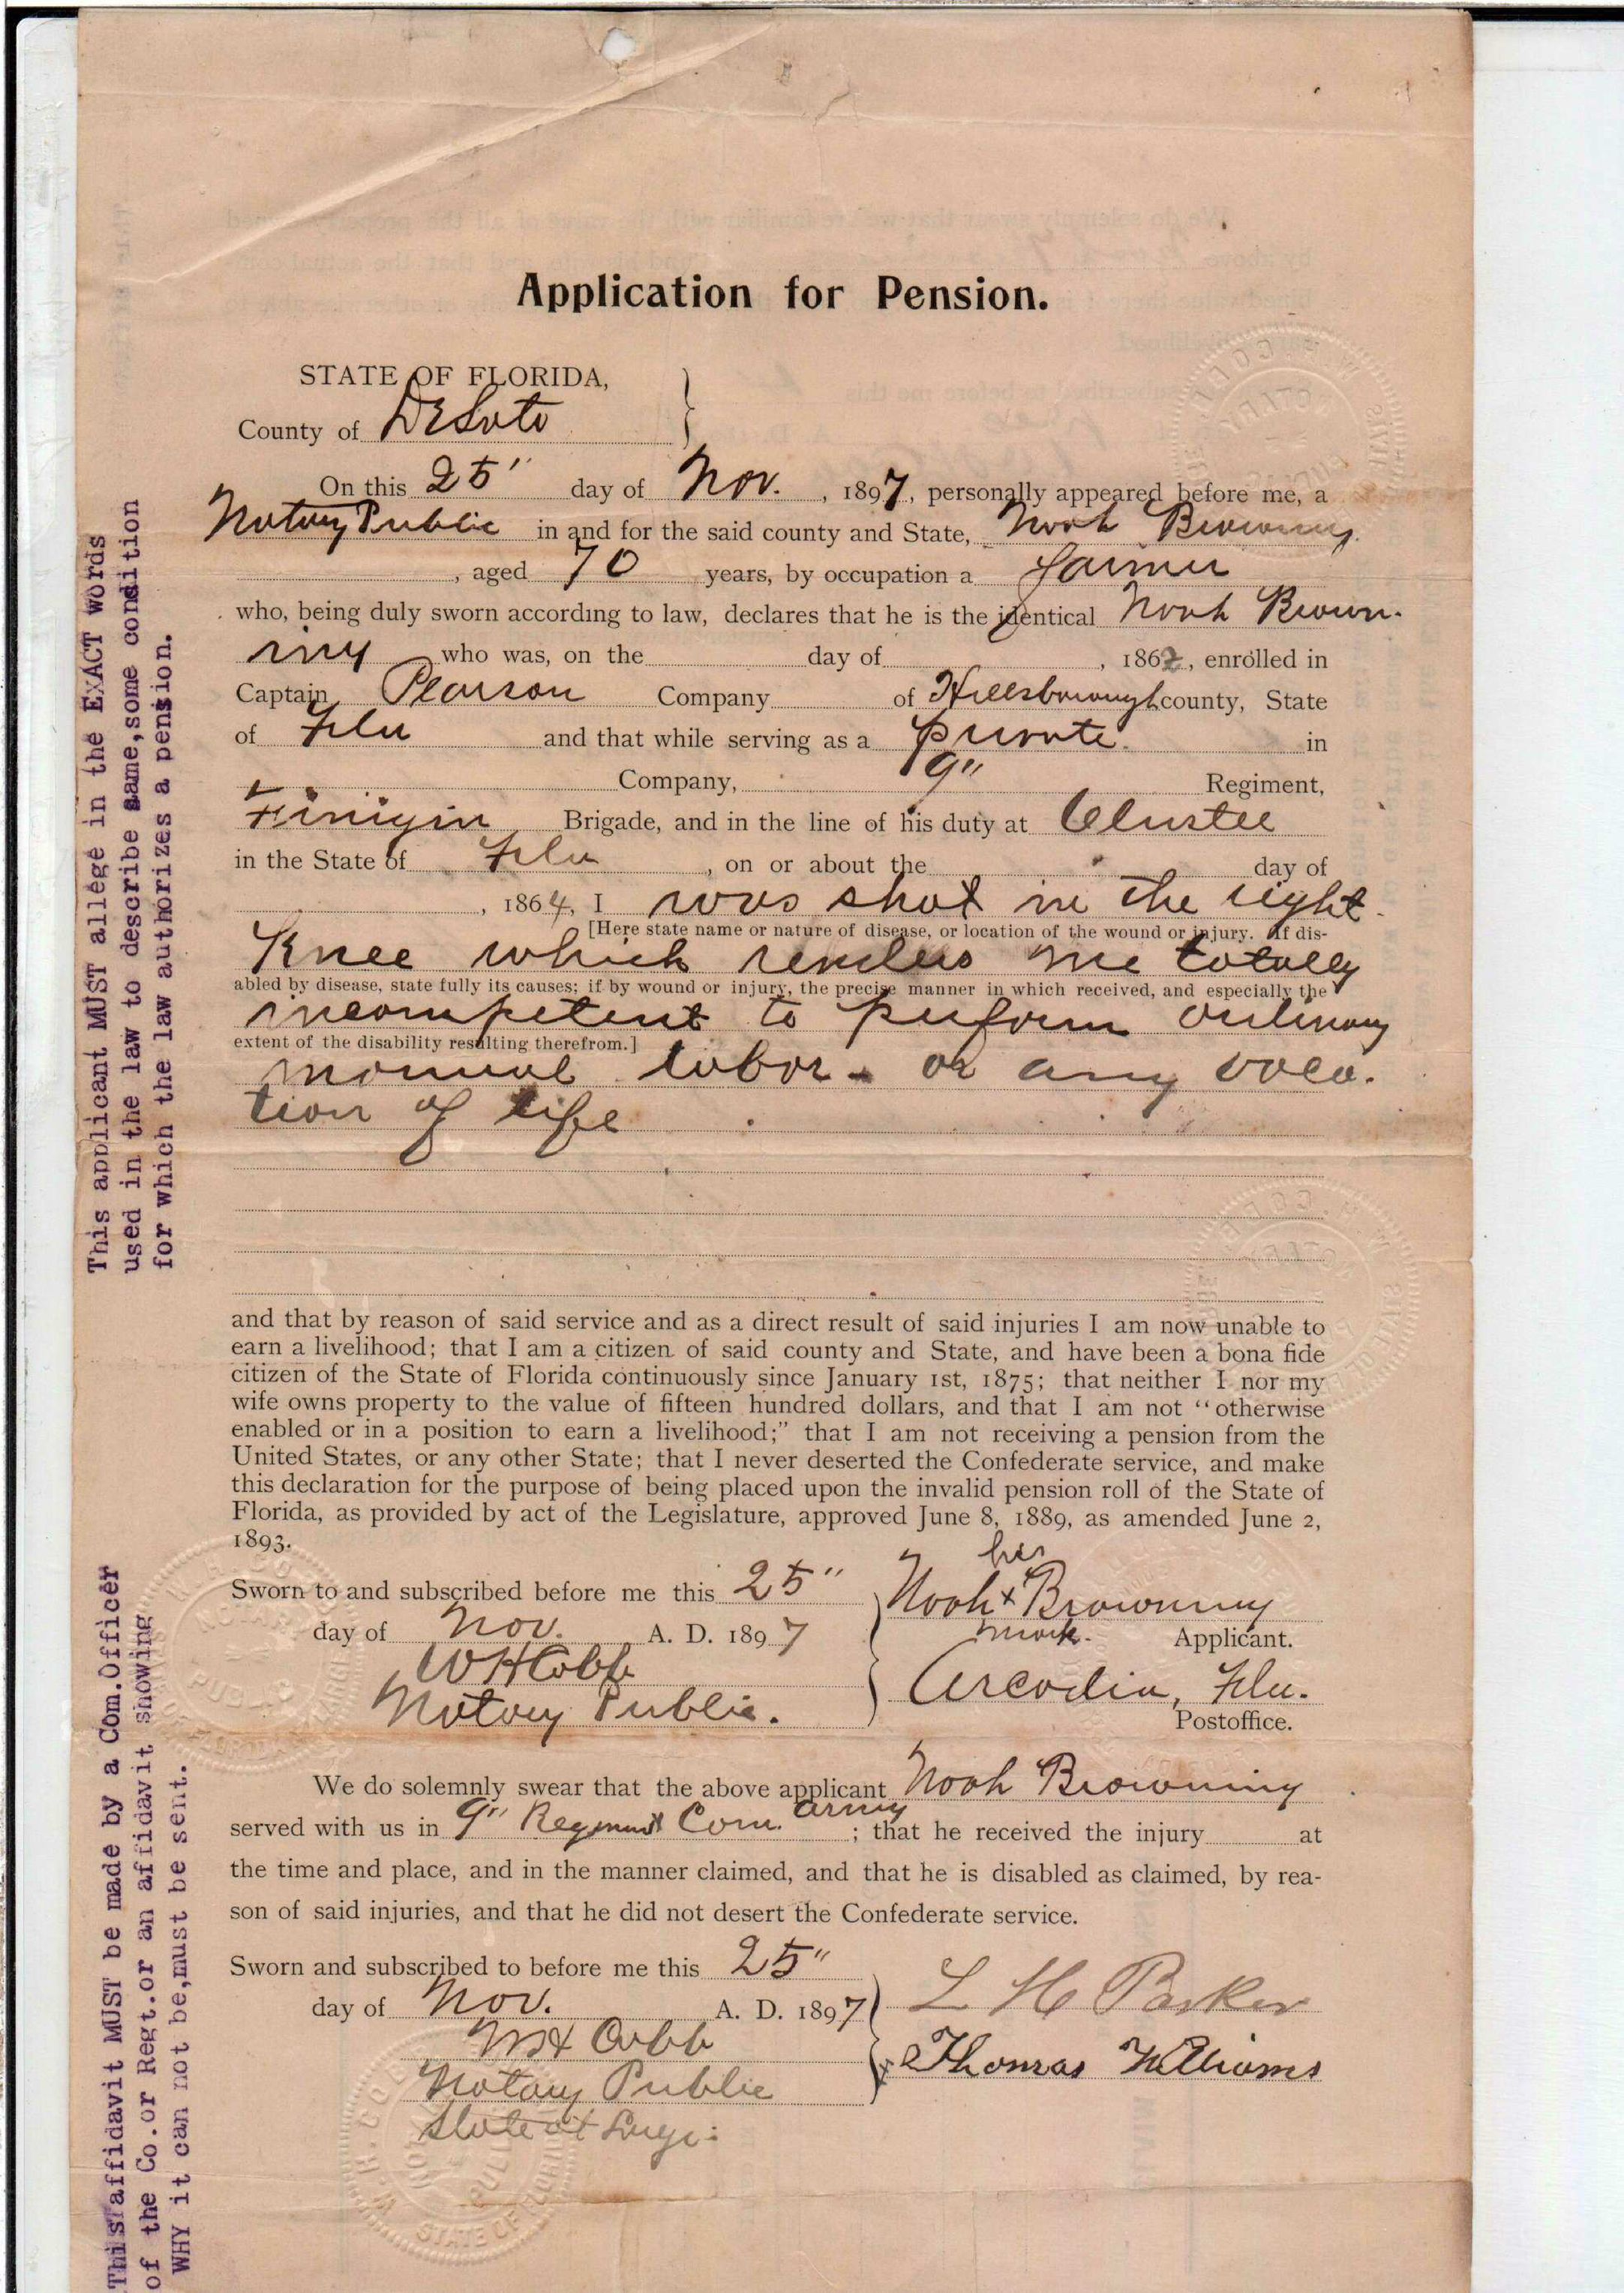 Application for Pension.
STATE OF FLORIDA,
County of DeSoto
On this 25" day of Nov. , 1897, personally appeared before me, a
Notary Public in and for the said county and State, Noah Browning
, aged 70 years, by occupation a farmer
who, being duly sworn according to law, declares that he is the identical Noah Brown-
ing who was, on the day of , 1862, enrolled in
Captain Pearson Company of Hillsborough county, State
of Fla and that while serving as a private in
Company, 9" Regiment,
Finigin Brigade, and in the line of his duty at Olustee
in the State of Fla , on or about the day of
, 1864, I was shot in the right
[Here state name or nature of disease, or location of the wound or injury. If dis-
Knee which renders me totally
abled by disease, state fully its causes; if by wound or injury, the precise manner in which received, and especially the
incompetent to perform ordinary
extent of the disability resulting therefrom.]
manual labor - or any voca-
tion of life
and that by reason of said service and as a direct result of said injuries I am now unable to
earn a livelihood; that I am a citizen of said county and State, and have been a bona fide
citizen of the State of Florida continuously since January 1st, 1875; that neither I nor my
wife owns property to the value of fifteen hundred dollars, and that I am not "otherwise
enabled or in a position to earn a livelihood;" that I am not receiving a pension from the
United States, or any other State; that I never deserted the Confederate service, and make
this declaration for the purpose of being placed upon the invalid pension roll of the State of
Florida, as provided by act of the Legislature, approved June 8, 1889, as amended June 2,
1893.
Sworn to and subscribed before me this 25"
day of Nov. A. D. 1897
W H Cobb
Notary Public.
his
Noah x Browning
mark. Applicant.
Arcadia, Fla.
Postoffice.
We do solemnly swear that the above applicant Noah Browning
served with us in 9" Regiment Com. army ; that he received the injury at
the time and place, and in the manner claimed, and that he is disabled as claimed, by rea-
son of said injuries, and that he did not desert the Confederate service.
Sworn and subscribed to before me this 25"
day of Nov. A. D. 1897
W H Cobb
Notary Public
State at Large
L H Parker
Thomas Williams
This applicant MUST allege in the EXACT words
used in the law to describe same, some condition
for which the law authorizes a pension.
This affidavit MUST be made by a Com. Officer
of the Co. or Regt. or an affidavit showing
WHY it can not be, must be sent.